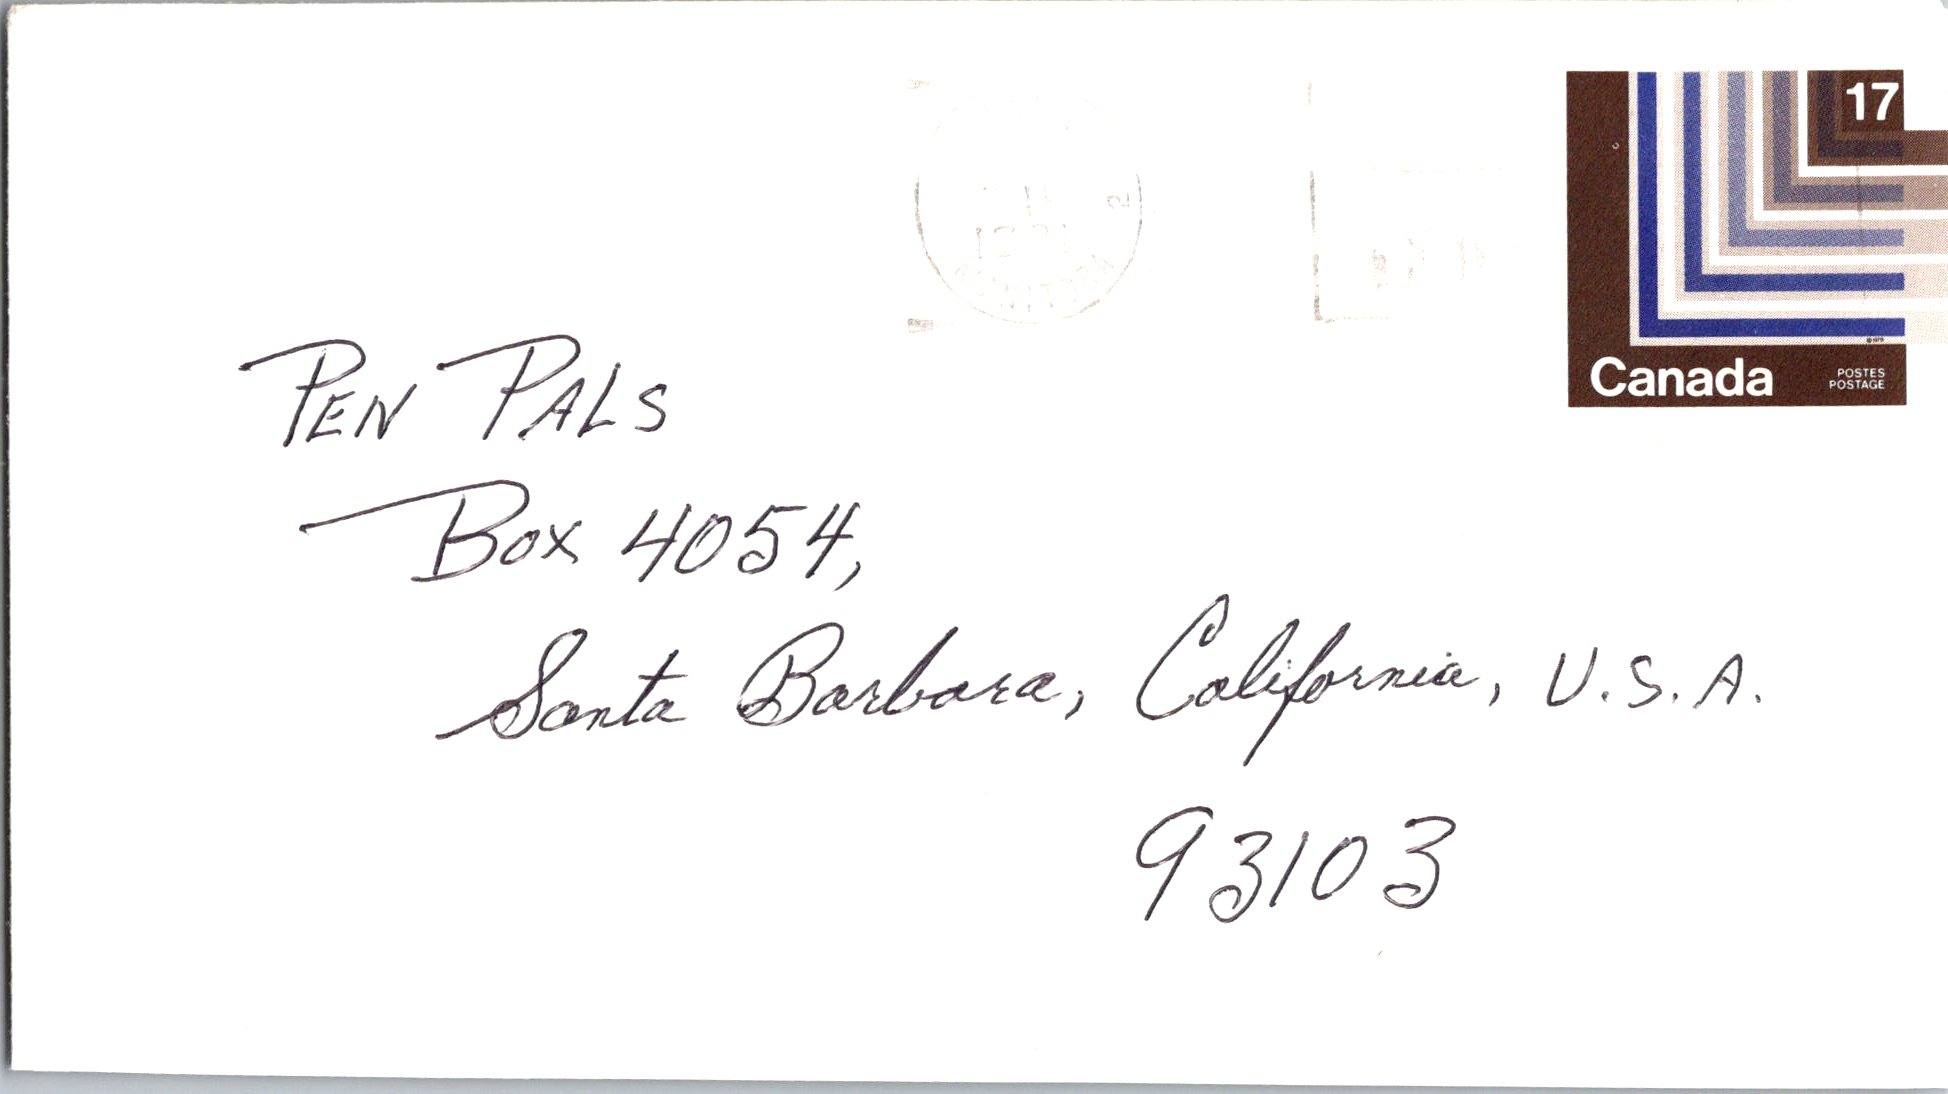 17
© 1979
Canada
POSTES
POSTAGE
PEN PALS
BOX 4054,
Santa Barbara, California, U.S.A.
93103